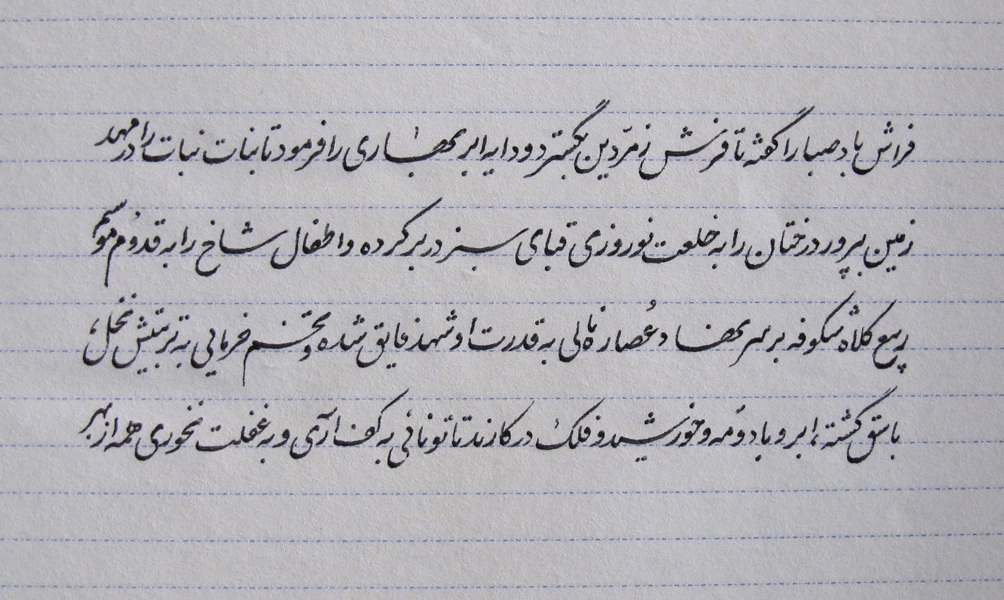 فراش باد صبا را گفته تا فرش زمرّدین بگسترد و دایه ابر بهاری را فرمود تا بنات نبات را در مهد
زمین بپرورد درختان را به خلعت نوروزی قبای سبز در بر کرده و اطفال شاخ را به قدوُم موسم
ربیع کلاه شکوفه بر سر نهاده عُصاره نالی به قدرت او شهد فایق شده و تخم خرمایی به تربیتش نخل
باسق گشته، ابر و باد و مَه و خورشید و فلک در کارند تا تو نانی به کف آری و به غفلت نخوری همه از بهر